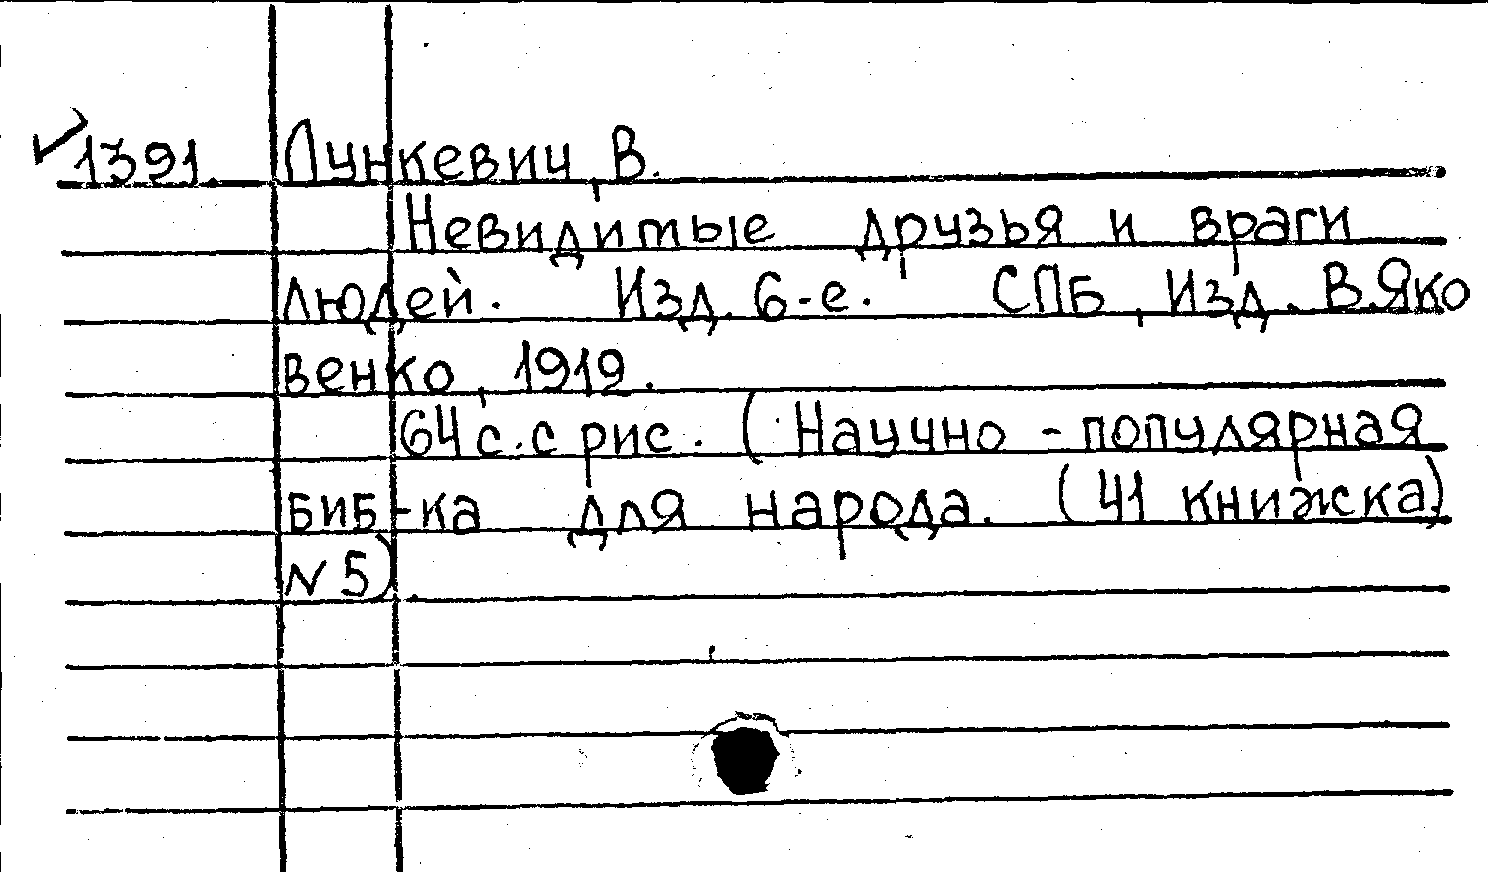 1391. Лункевич, В.
Невидимые друзья и враги
людей. Изд. 6-е. СПБ, Изд. В.Яко
венко, 1919.
64 с. с рис. (Научно-популярная
БИБ-ка для народа. (41 книжка)
N 5).